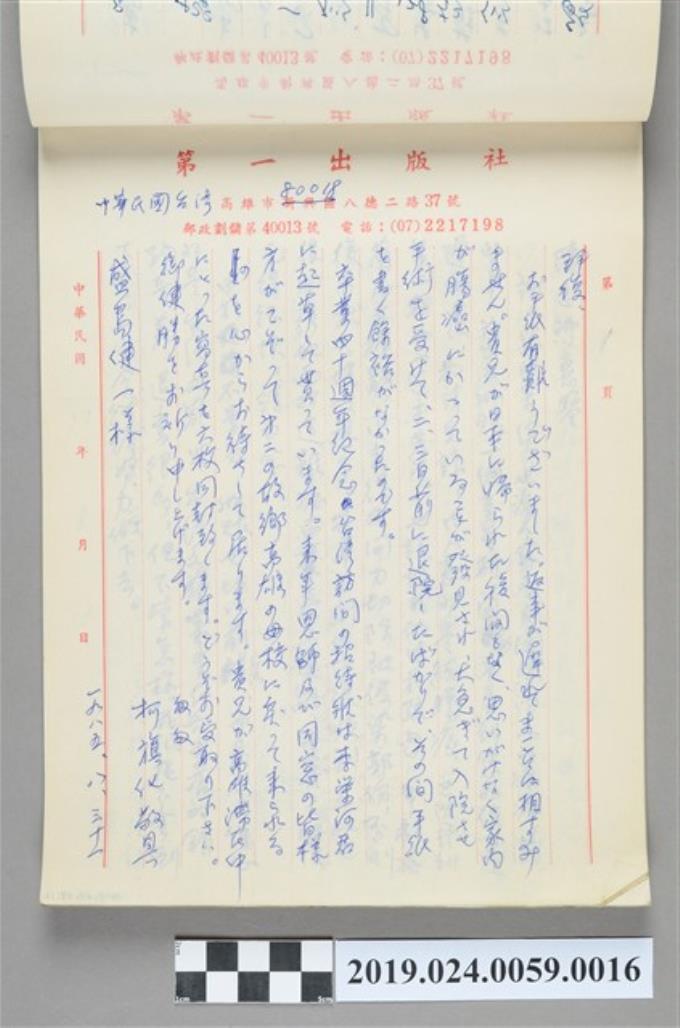 學政劃儲第40013號 電話:(07)2217198
高雄市新興區八德二路37號
第一出版社
第一出版社
中華民國台湾 高雄市新興區八德二路37號
80018
郵政劃儲第40013號 電話:(07)2217198
第 頁
拝復、
お手紙有難うございました。返事が遅れまことに相すみ
ません。貴兄が日本に帰られた後間もなく、思いがけなく家内
が腸癌にかかっている事が発見され、大急ぎで入院させ
手術を受けて、二、三日前に退院したばかりで、その間手紙
を書く余裕がなかったのです。
卒業四十週年紀念台湾訪問の招待状は李栄河君
に起草して貰っています。来年恩師及び同窓の皆様
方がこぞって第二の故郷高雄の母校に戻って来られる
を心からお待ちして居ります。貴兄が高雄滞在中
にとった写真を六枚同封致します。どうぞお受取り下さい。
御健勝をお祈り申し上げます。
敬具
柯旗化敬具
盛島健一様
一九八五、八、三十一
中華民國 年 月 日
2019.024.0059.0016